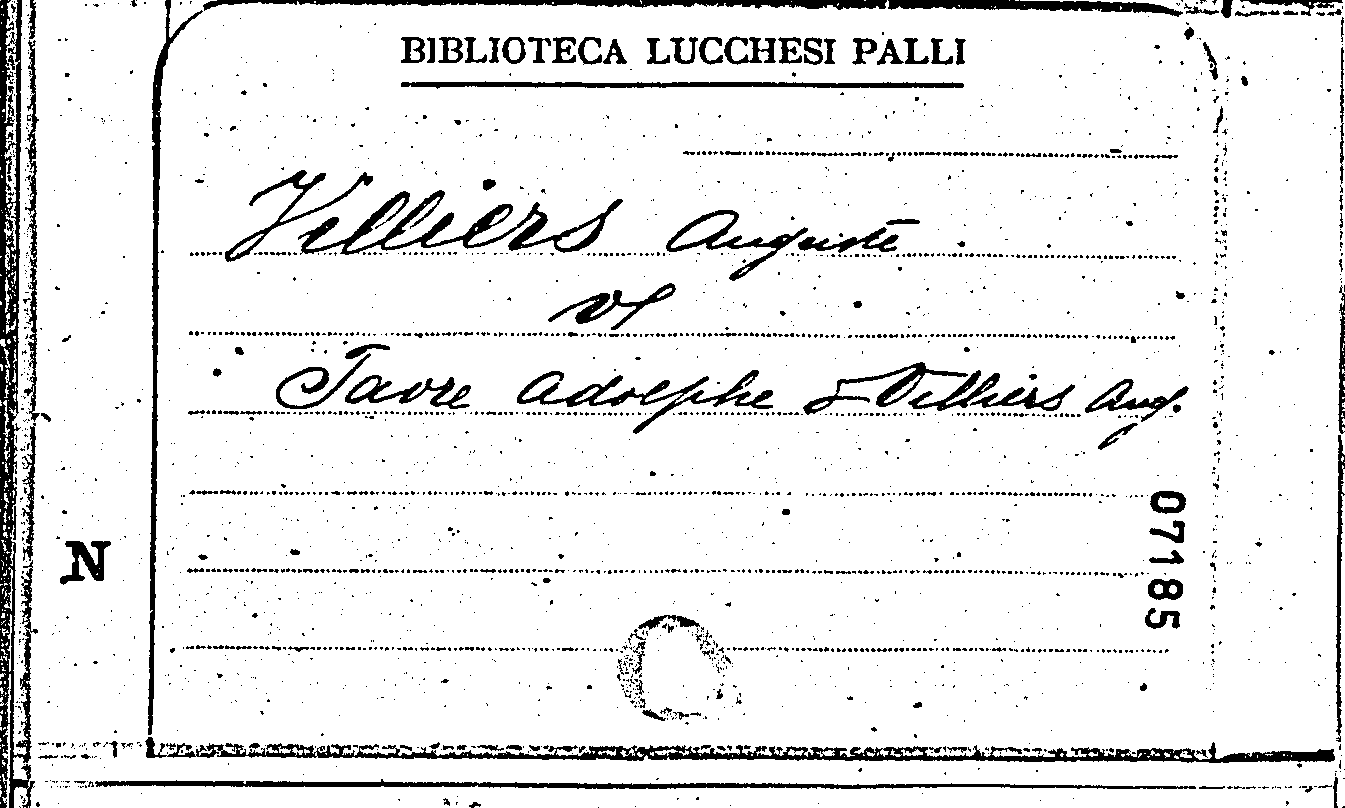 BIBLIOTECA LUCCHESI PALLI
Villiers Auguste
vf
Favre Adolphe & Villiers Aug.
07185
N